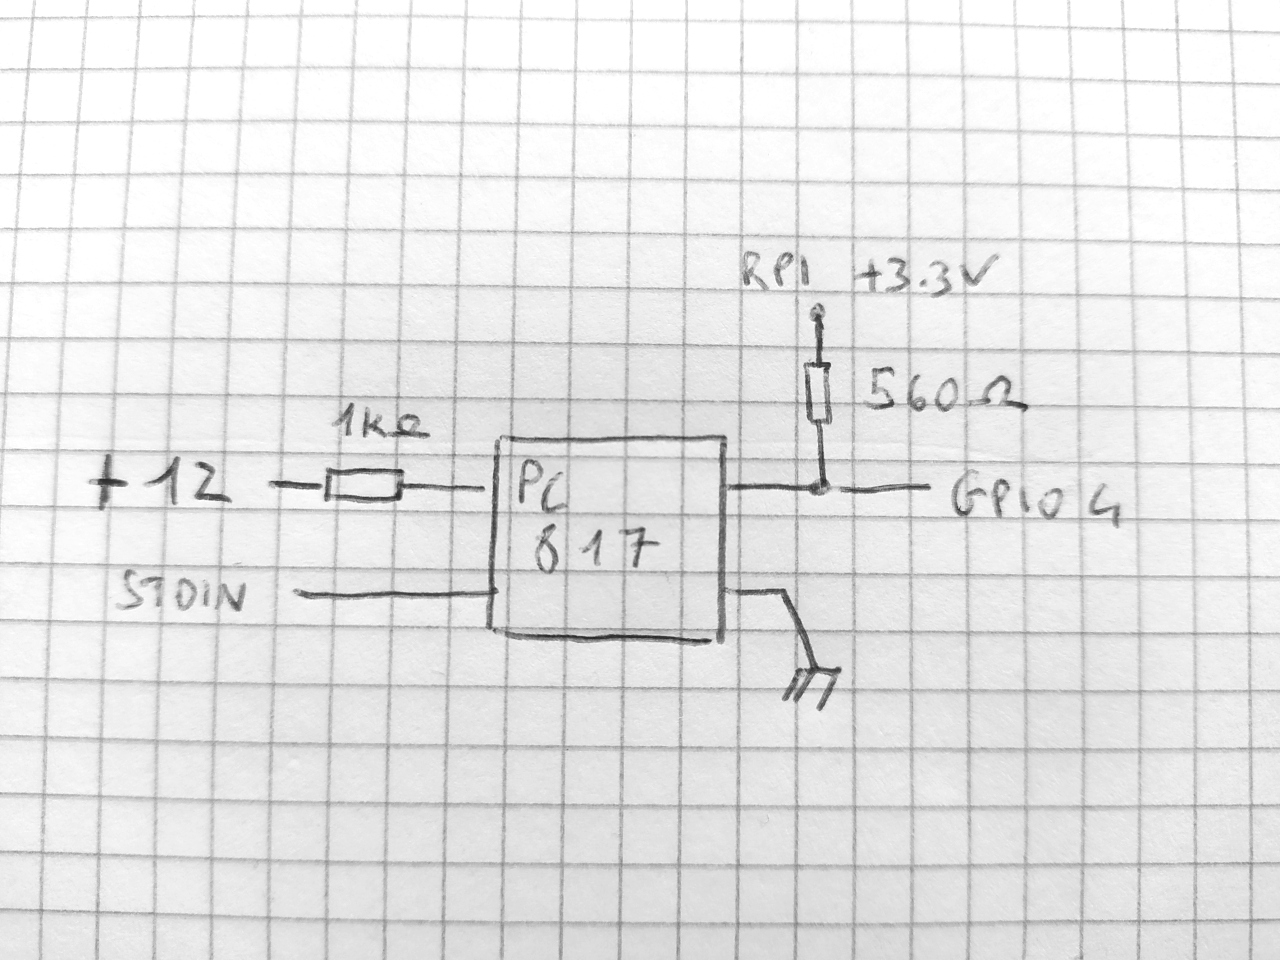 RPI +3.3V
560Ω
1KΩ
+12
PC
817
GPIO 4
STDIN